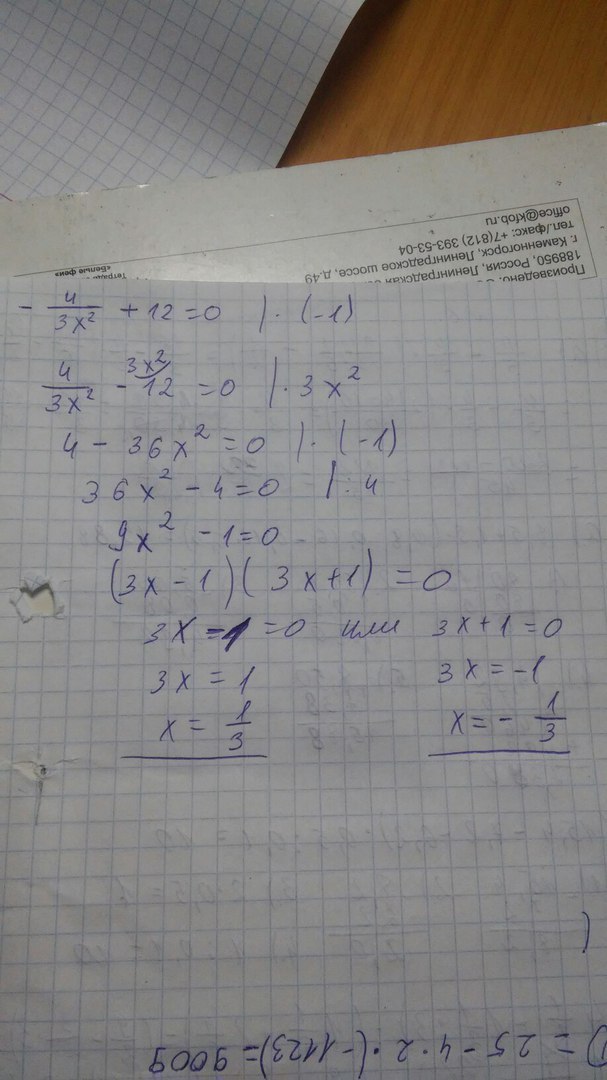 Произведено. О
188950, Россия, Ленинградская
г. Каменногорск, Ленинградское шоссе, д.49
тел./факс: +7(812) 393-53-04
office@kfob.ru
Тетрадь
«Белые
- 4/3x² + 12 = 0 | · (-1)
3x²
4/3x² - 12 = 0 | · 3x²
4 - 36x² = 0 | · (-1)
36x² - 4 = 0 | : 4
9x² - 1 = 0
(3x - 1)(3x + 1) = 0
3x - 1 = 0 или 3x + 1 = 0
3x = 1 3x = -1
x = 1/3 x = - 1/3
D = 25 - 4 · 2 · (-1123) = 9009